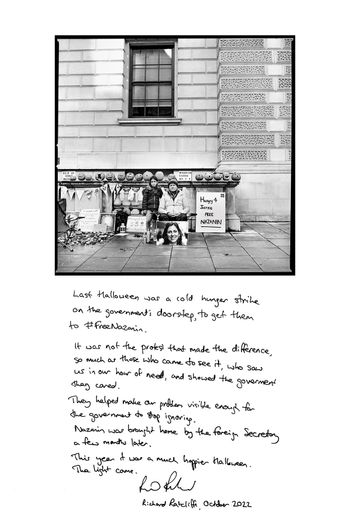 Hungry 4
FREE
NAZANIN
Last Halloween was a cold hunger strike
on the government's doorstep, to get them
to #FreeNazanin.
It was not the protest that made the difference,
so much as those who came to see it, who saw
us in our hour of need, and showed the government
they cared.
They helped make our problem visible enough for
the government to stop ignoring.
Nazanin was brought home by the Foreign Secretary
a few months later.
This year it was a much happier Halloween.
The light came.
Richard Ratcliffe, October 2022